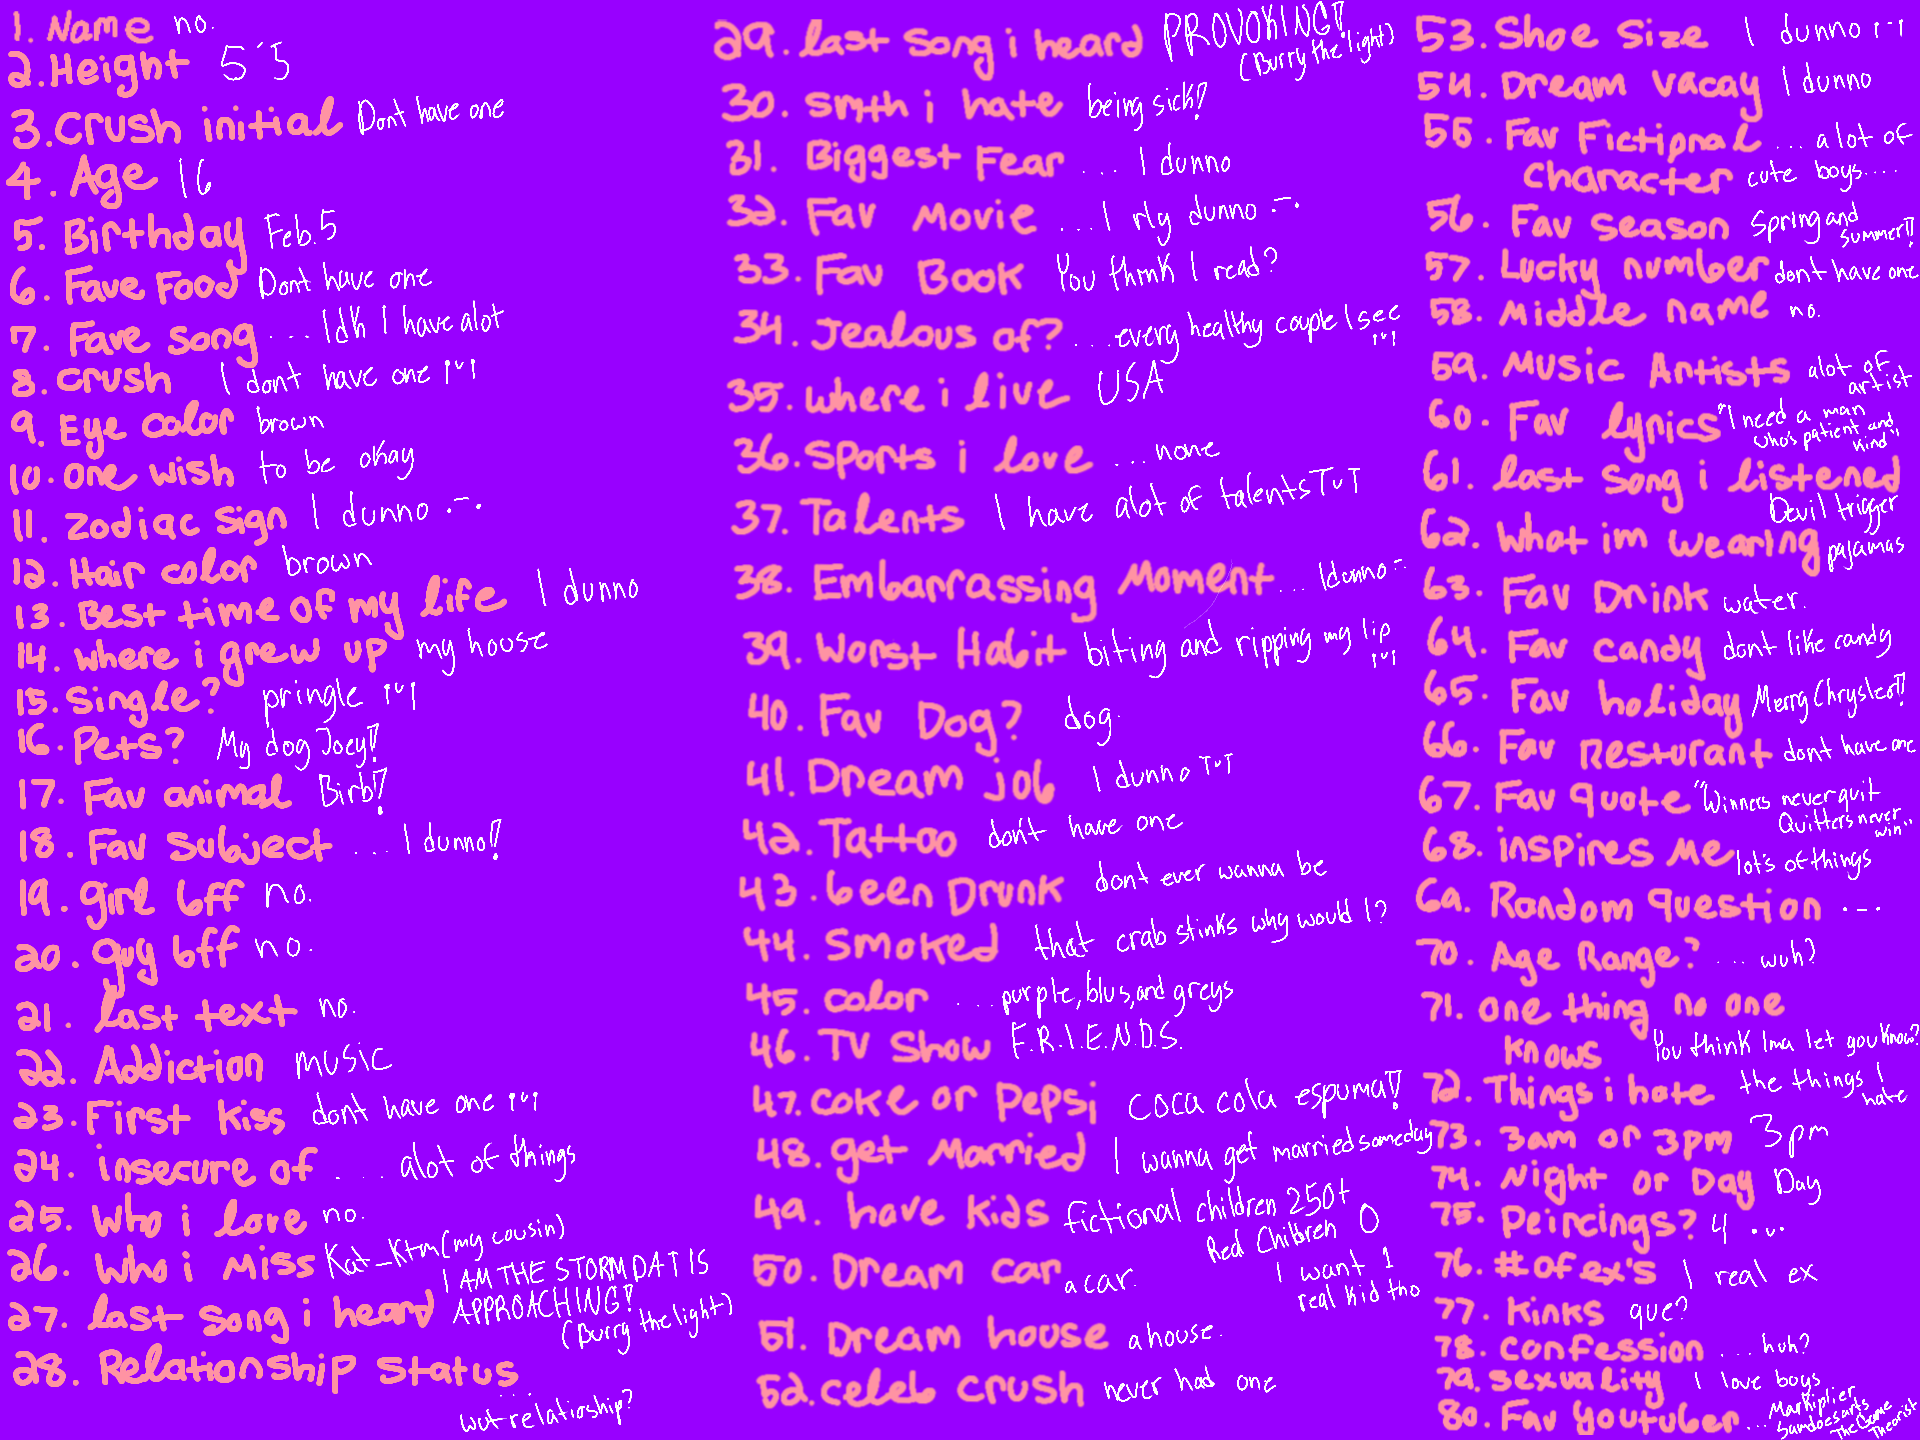 1. Name no.
2. Height 5'5
3. Crush initial Dont have one
4. Age 16
5. Birthday Feb. 5
6. Fave Food Dont have one
7. Fave song ... Idk I have alot
8. crush I dont have one !u!
9. Eye color brown
10. one wish to be okay
11. Zodiac Sign I dunno .-.
12. Hair color brown
13. Best time of my life I dunno
14. where i grew up my house
15. Single? pringle !u!
16. Pets? My dog Joey!!
17. Fav animal Birb!!
18. Fav Subject ... I dunno!!
19. girl bff no.
20. guy bff no.
21. last text no.
22. Addiction music
23. First kiss dont have one !u!
24. insecure of .... alot of things
25. Who i love no.
26. Who i miss Kat_Ktm (my cousin)
27. last song i heard I AM THE STORM DAT IS
APPROACHING!!
(Burry the light)
28. Relationship Status
...
wut relatioship?
29. last song i heard PROVOKING!!
(Burry the light)
30. smth i hate being sick!!
31. Biggest Fear ... I dunno
32. Fav Movie ... I rly dunno .-.
33. Fav Book You think I read?
34. Jealous of? ...every healthy couple I see
!u!
35. where i live USA
36. Sports i love ...none
37. Talents I have alot of talents TuT
38. Embarrassing Moment ... I dunno .-.
39. Worst Habit biting and ripping my lip
!u!
40. Fav Dog? dog.
41. Dream job I dunno TuT
42. Tattoo don't have one
43. been Drunk dont ever wanna be
44. Smoked that crab stinks why would I?
45. color ...purple, blus, and greys
46. TV Show F.R.I.E.N.D.S.
47. coke or Pepsi coca cola espuma!!
48. get Married I wanna get married someday
49. have kids fictional children 250+
Real Children 0
I want 1
real kid tho
50. Dream car a car.
51. Dream house a house.
52. celeb crush never had one
53. Shoe Size I dunno !-!
54. Dream vacay I dunno
55. Fav Fictional ... alot of
Character cute boys....
56. Fav season Spring and
Summer!!
57. Lucky number dont have one
58. Middle name no.
59. Music Artists alot of
artist
60. Fav lyrics "I need a man
who's patient and
kind"
61. last song i listened
Devil trigger
62. What im wearing pajamas
63. Fav Drink water.
64. Fav candy dont like candy
65. Fav holiday Merry Chrysler!!
66. Fav Resturant dont have one
67. Fav quote "Winners never quit
Quitters never
win"
68. inspires Me lots of things
69. Random question .-.
70. Age Range? ... wuh?
71. one thing no one
knows You think Ima let you know?
72. Things i hate the things I
hate
73. 3am or 3pm 3pm
74. Night or Day Day
75. Peircings? 4 .u.
76. # of ex's 1 real ex
77. Kinks que?
78. confession ... huh?
79. sexuality I love boys
80. Fav youtuber ... Markiplier
Samdoesarts
The Game
Theorist